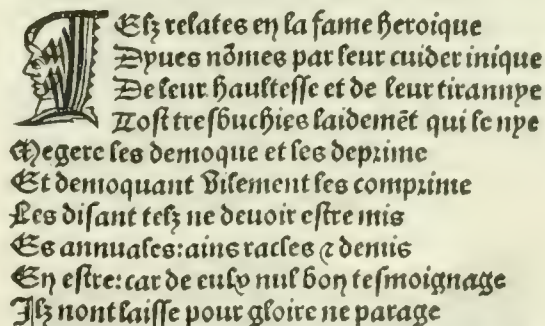 TElz relates en la fame heroique
Dyues nõmes par leur cuider inique
De leur haultesse et de leur tirannye
Tost tresbuchies laidemẽt qui le nye
Megere les demoque et les deprime
Et demoquant vilement les comprime
Les disant telz ne deuoir estre mis
Es annuales: ains racles ⁊ demis
En estre: car de eulx nul bon tesmoignage
Ilz nont laisse pour gloire ne parage